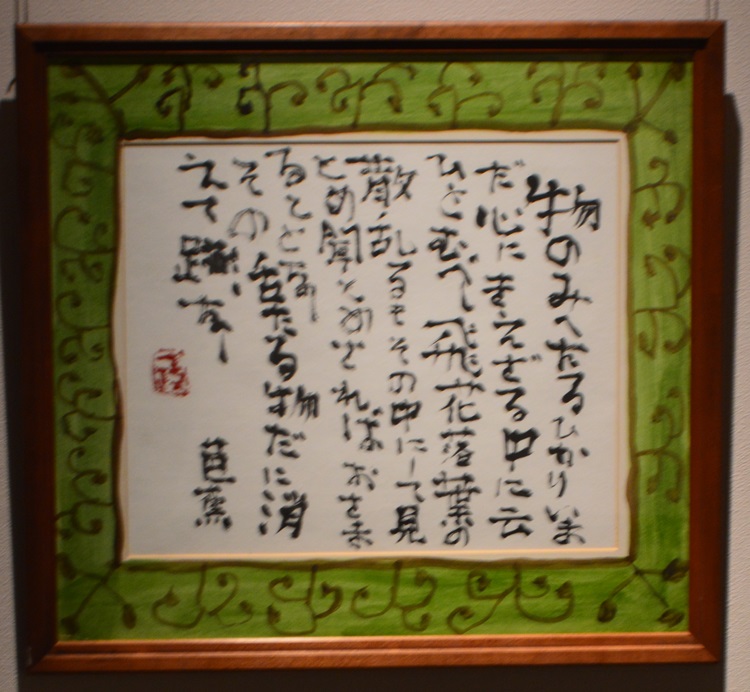 物のみへたるひかりいま
だ心にきえざる中に云
ひとむべし飛花落葉の
散乱るもその中にして見
とめ聞とめざればおさま
ること
その活たる物だに消
えて跡なし
芭蕉